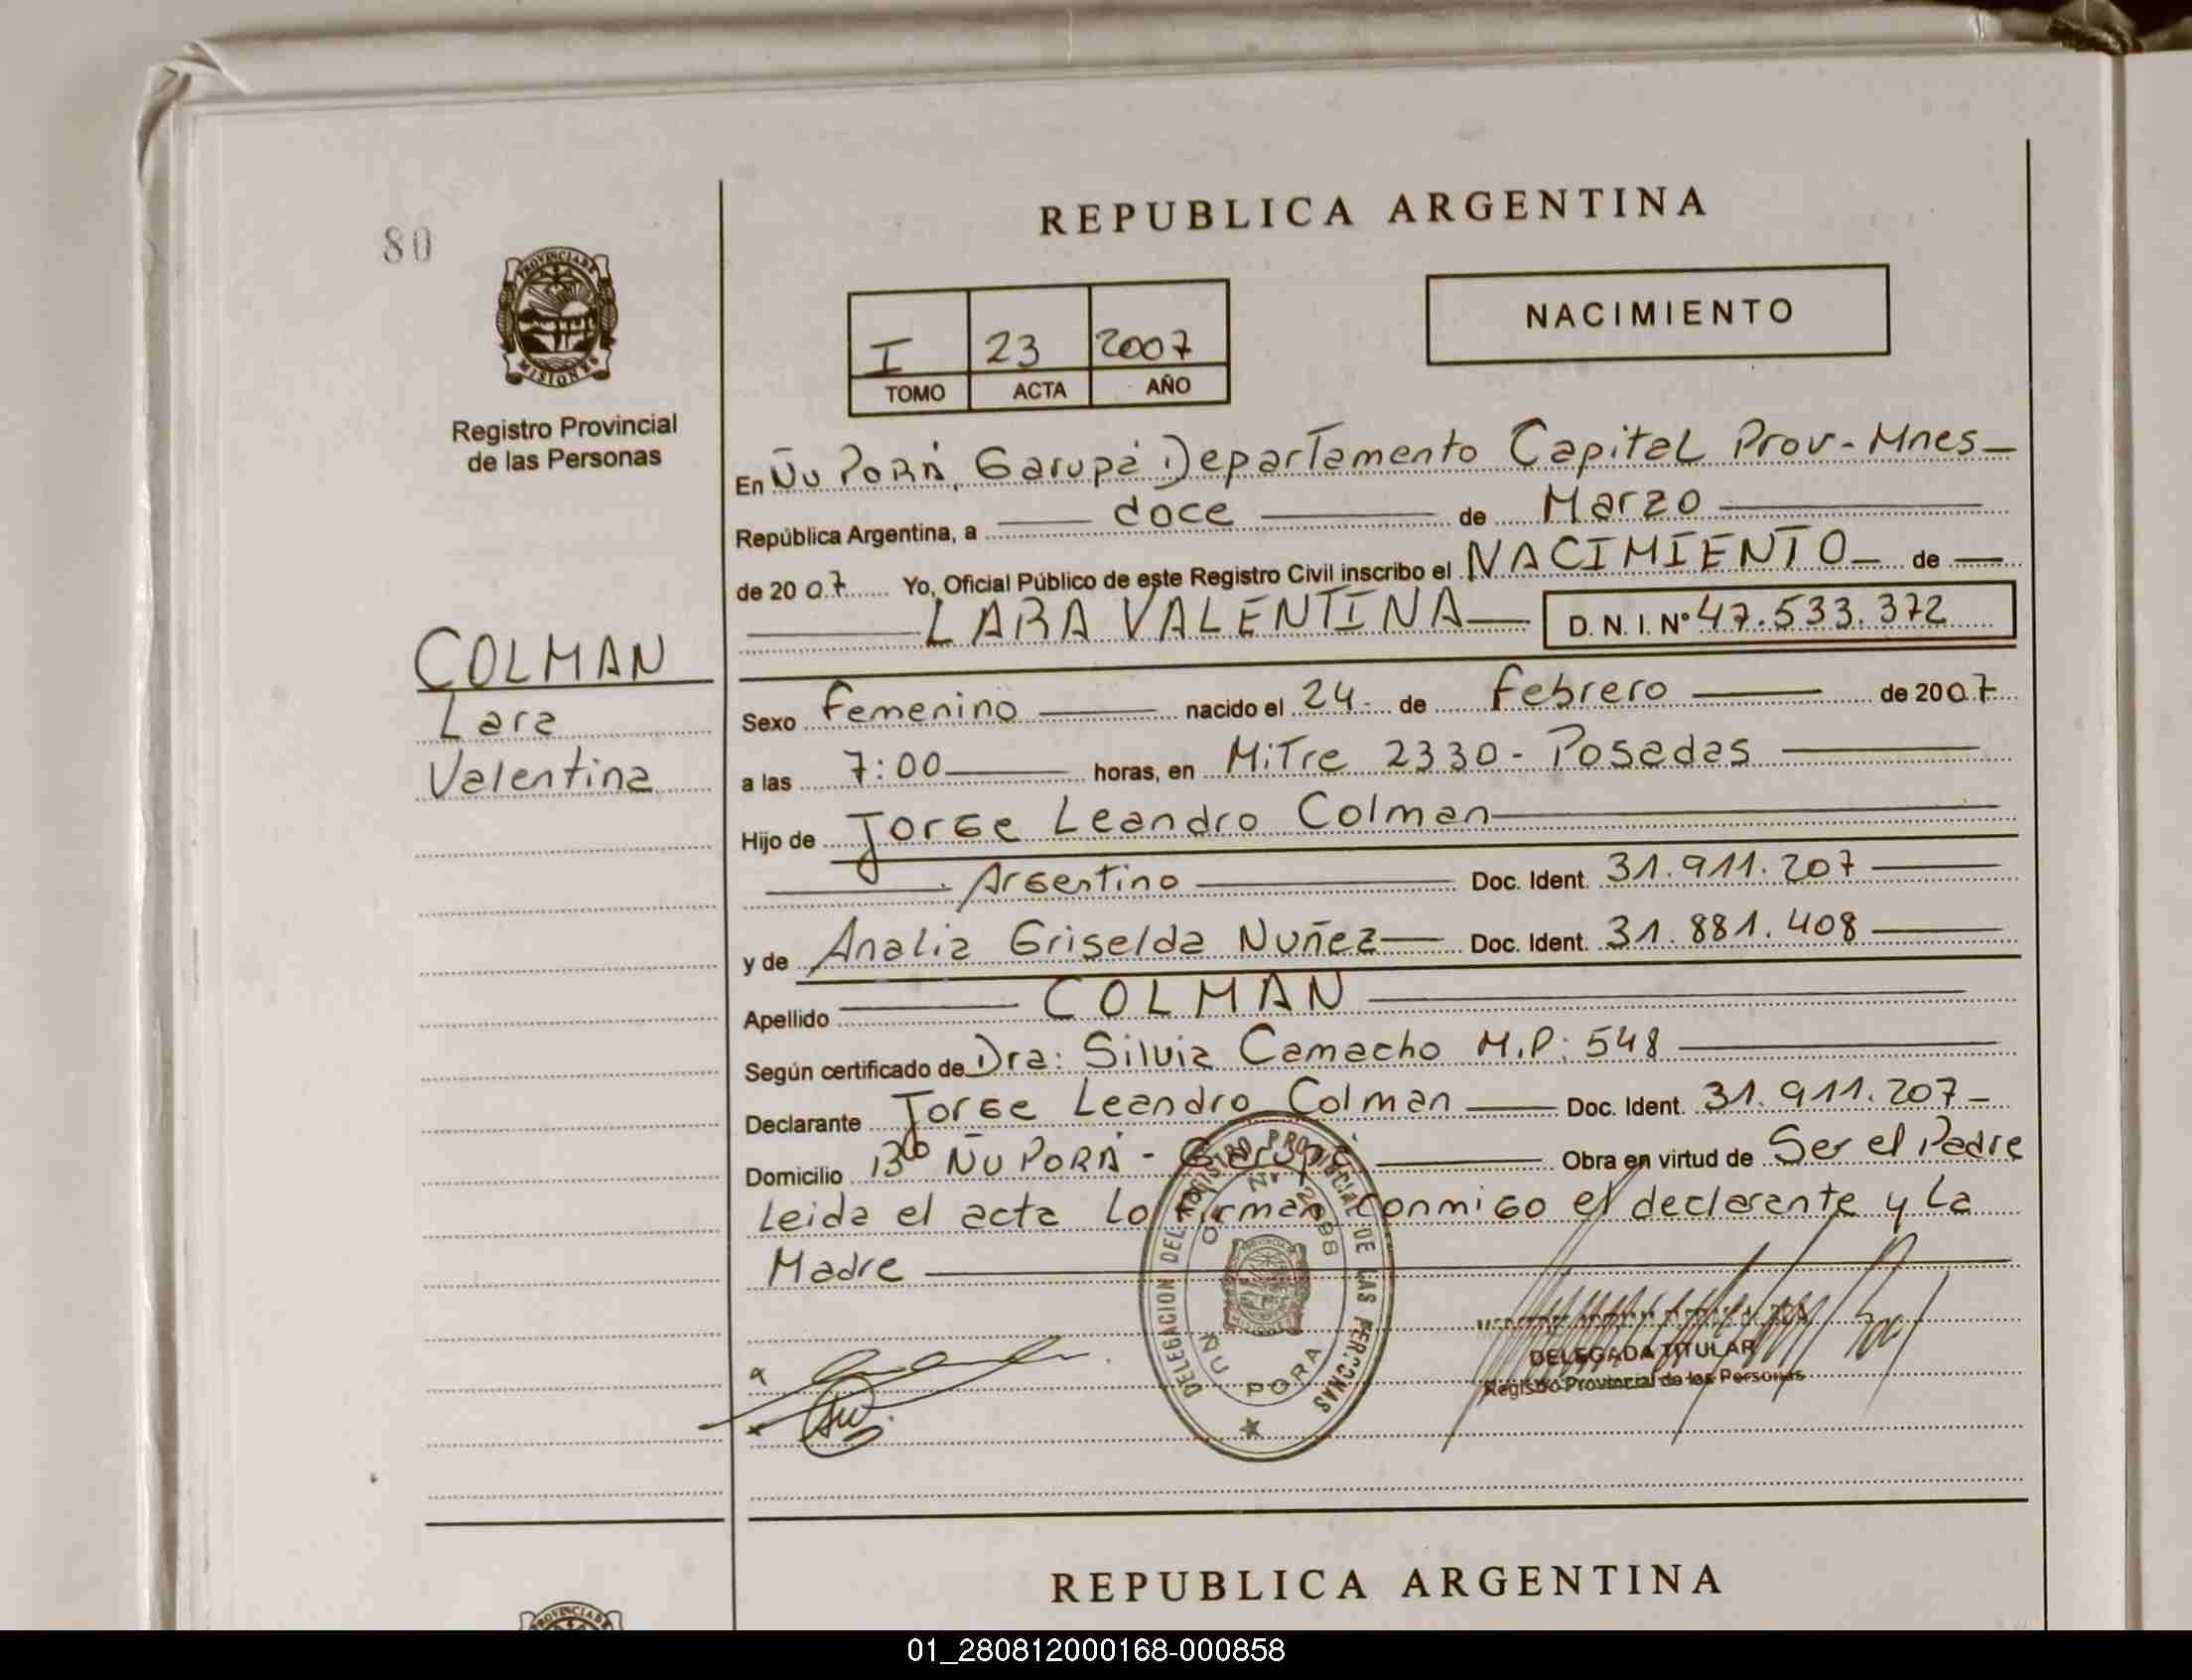 80
PROVINCIA DE
MISIONES
Registro Provincial
de las Personas
COLMAN
Lara
Valentina
REPUBLICA ARGENTINA
I 23 2007
TOMO ACTA AÑO
NACIMIENTO
En Ñu PORÁ, Garupá Departamento Capital Prov-Mnes-
República Argentina, a doce de Marzo
de 2007 Yo, Oficial Público de este Registro Civil inscribo el NACIMIENTO de
LARA VALENTINA D. N. I. Nº 47.533.372
Sexo Femenino nacido el 24 de Febrero de 2007
a las 7:00 horas, en Mitre 2330 - Posadas
Hijo de Jorge Leandro Colman
Argentino Doc. Ident. 31.911.207
y de Analia Griselda Nuñez Doc. Ident. 31.881.408
Apellido COLMAN
Según certificado de Dra: Silvia Camacho M.P: 548
Declarante Jorge Leandro Colman Doc. Ident. 31.911.207
Domicilio Bº ÑU PORÁ - Garupá Obra en virtud de Ser el Padre
Leida el acta lo firman conmigo el declarante y la
Madre
DELEGACION DEL REGISTRO PROVINCIAL DE LAS PERSONAS
ÑU PORA
DELEGADA TITULAR
Registro Provincial de las Personas
REPUBLICA ARGENTINA
PROVINCIA DE
01_280812000168-000858